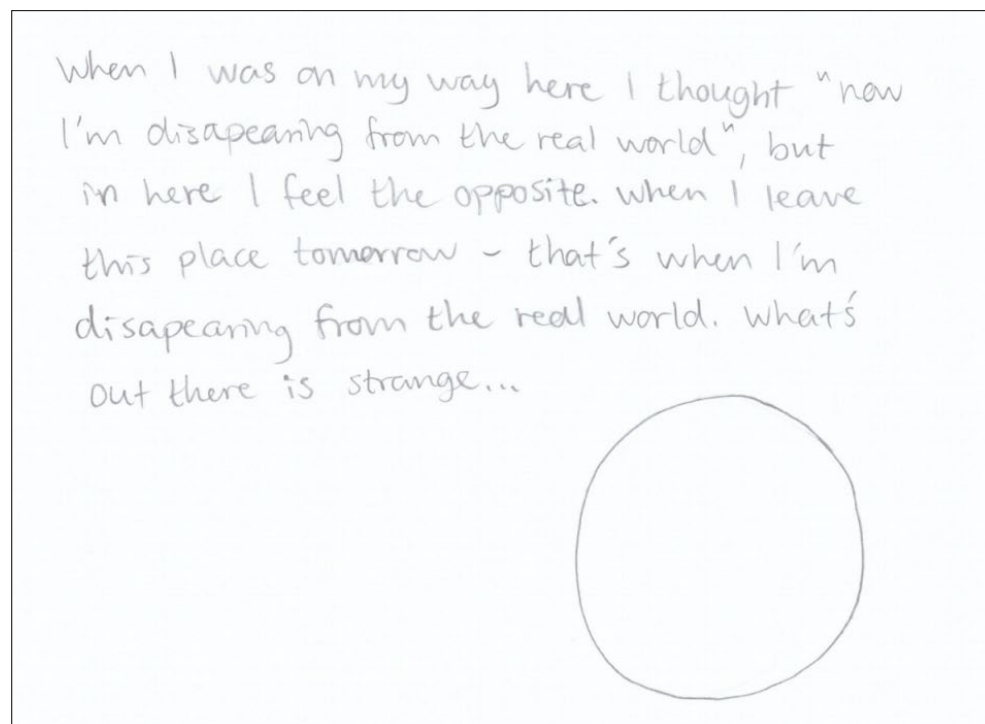 When I was on my way here I thought "now
I'm disapearing from the real world", but
in here I feel the opposite. When I leave
this place tomorrow - that's when I'm
disapearing from the real world. What's
out there is strange...